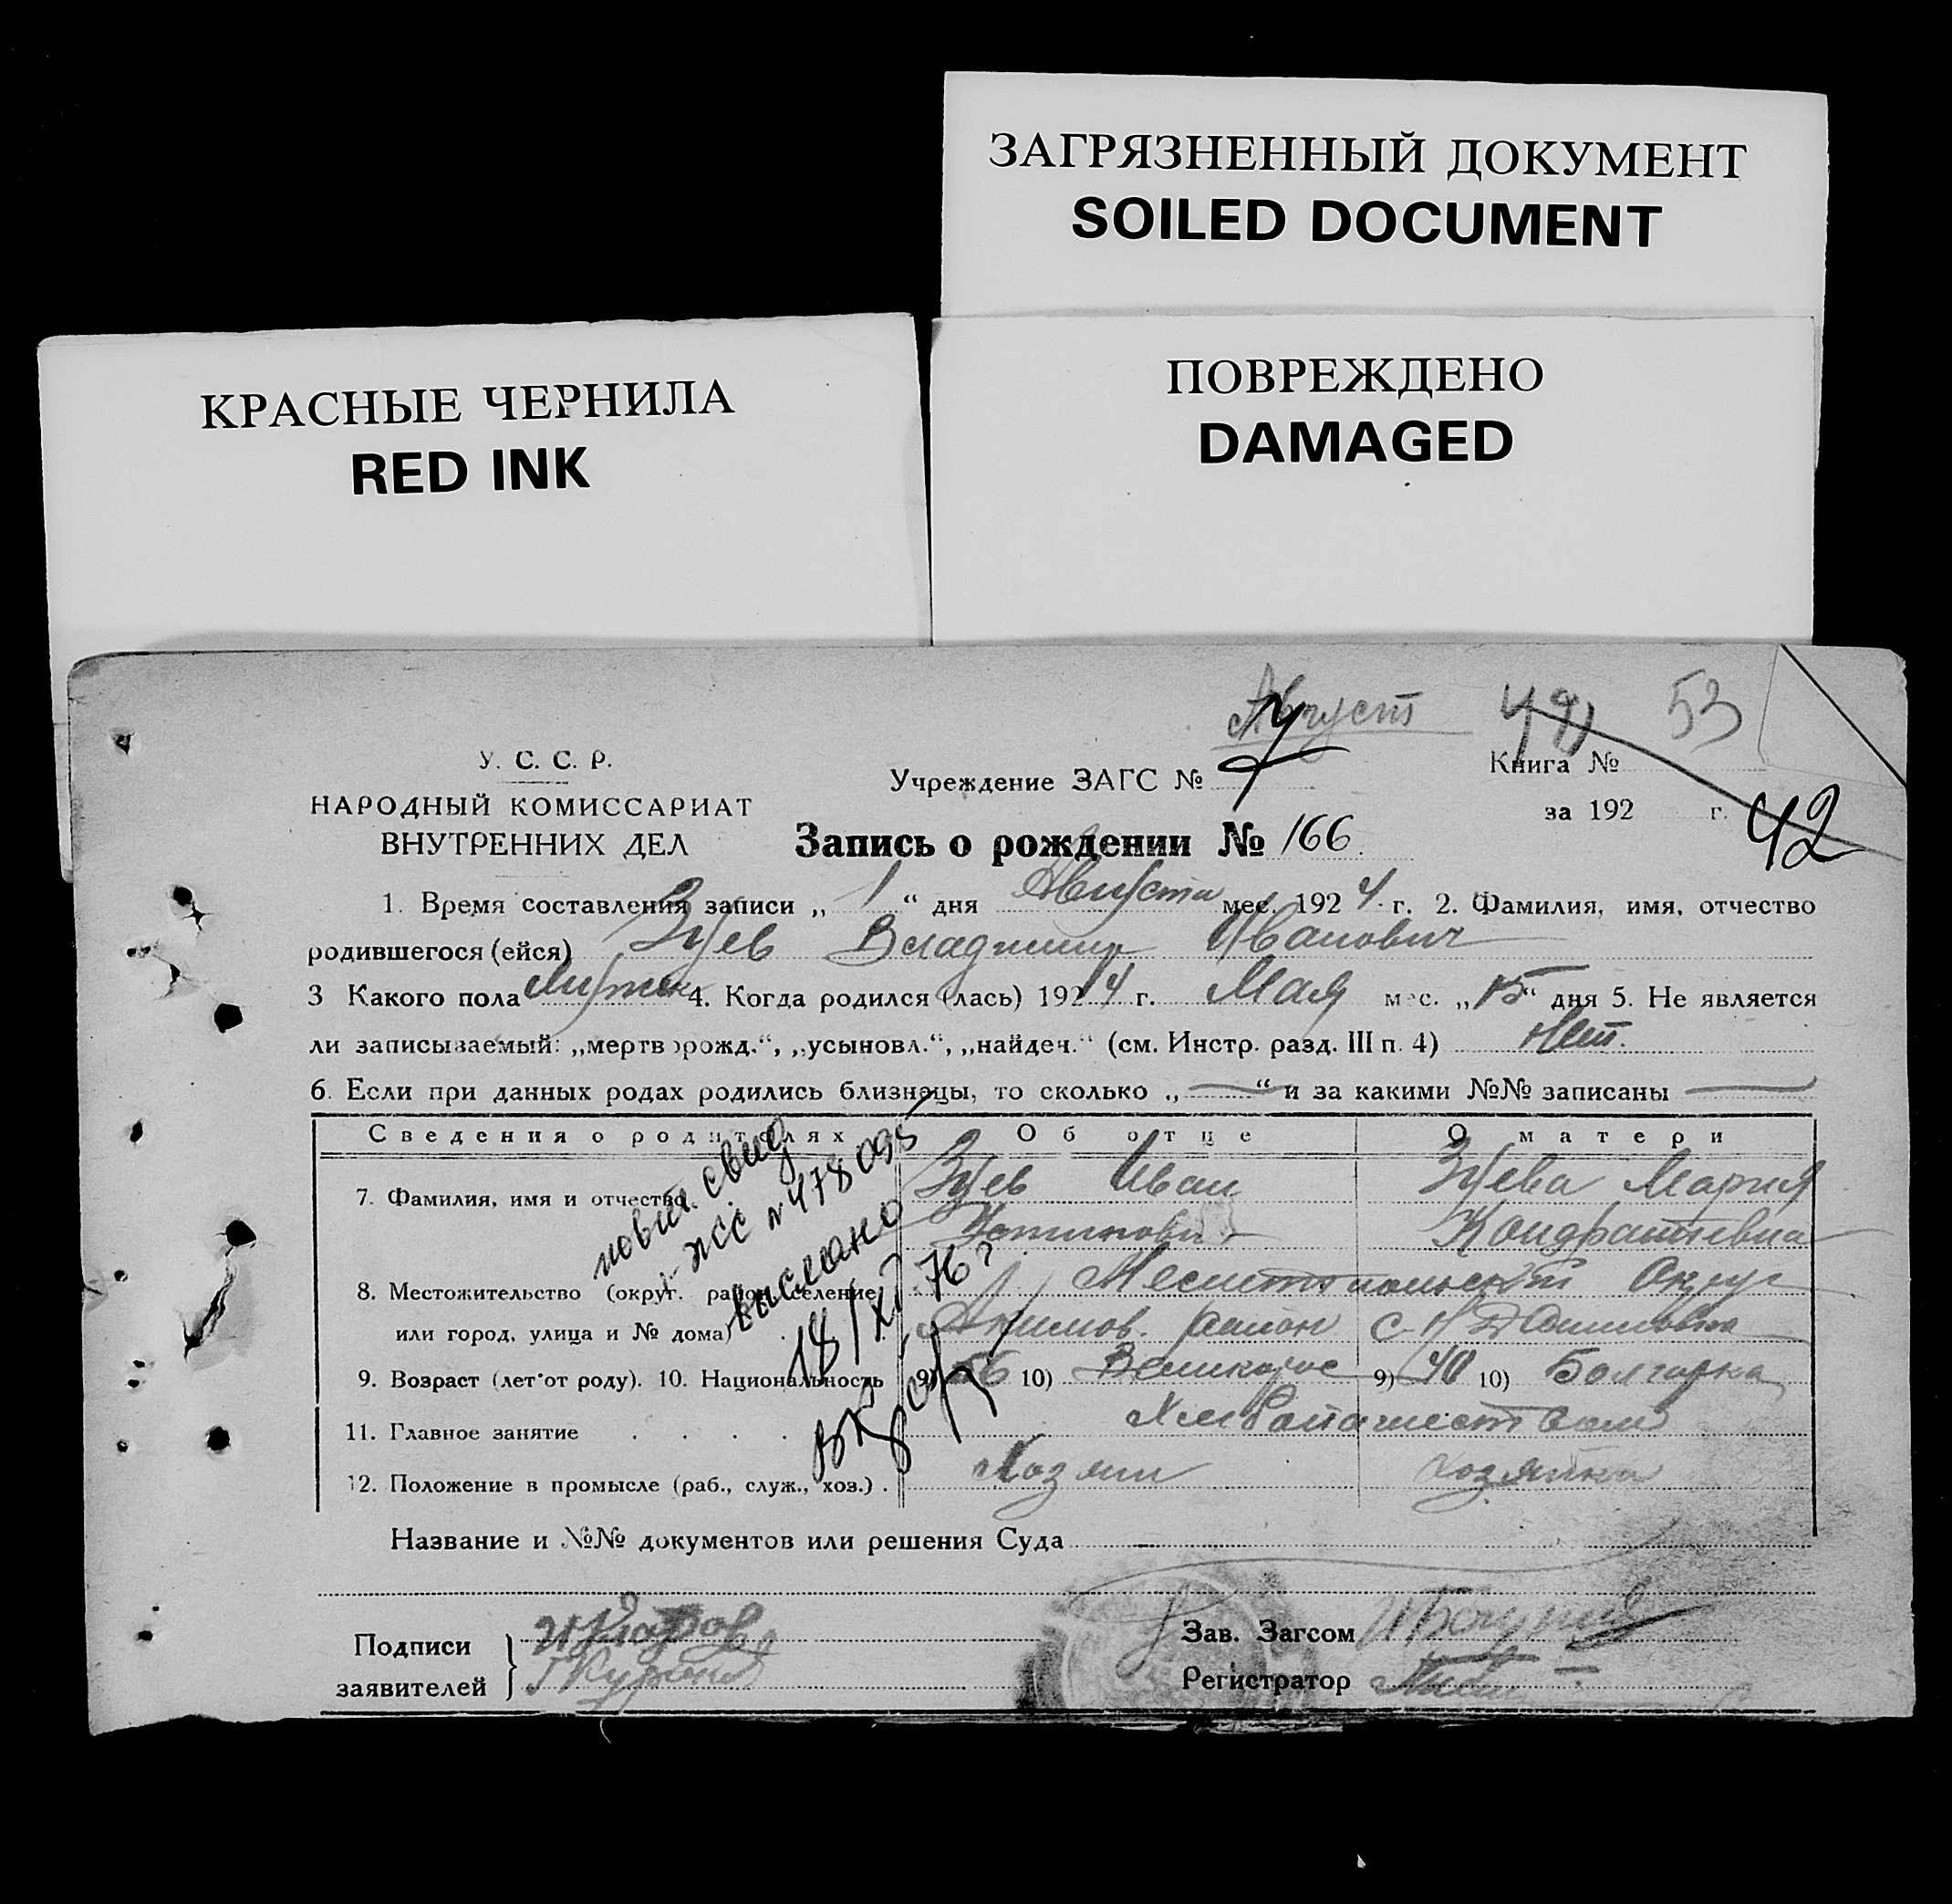 ЗАГРЯЗНЕННЫЙ ДОКУМЕНТ
SOILED DOCUMENT
КРАСНЫЕ ЧЕРНИЛА
RED INK
ПОВРЕЖДЕНО
DAMAGED
Август 53
У. С. С. Р.
НАРОДНЫЙ КОМИССАРИАТ
ВНУТРЕННИХ ДЕЛ
Учреждение ЗАГС №
Книга №
за 192 г. 42
Запись о рождении № 166
1. Время составления записи „ 1 “ дня Августа мес. 1924 г. 2. Фамилия, имя, отчество
родившегося (ейся) Зуев Владимир Иванович
3 Какого пола Мужск 4. Когда родился (лась) 1924 г. Мая мес. „15“ дня 5. Не является
ли записываемый: „мертворожд.“, „усыновл.“, „найден.“ (см. Инстр. разд. III п. 4) Нет.
6. Если при данных родах родились близнецы, то сколько „ — “ и за какими №№ записаны —
Сведения о родителях Об отце О матери
7. Фамилия, имя и отчество Зуев Иван Зуева Мария
Кондратьевна
8. Местожительство (округ. район, селение Мелитопольский Округ
или город, улица и № дома) Акимов. район с.
9. Возраст (лет от роду). 10. Национальность 9) 56 10) Великорос 9) 40 10) Болгарка
11. Главное занятие . . . . Хлебопашеством
12. Положение в промысле (раб., служ., хоз.) . Хозяин хозяйка
выслано
18/XI 76 г
Название и №№ документов или решения Суда
Подписи
заявителей
Зав. Загсом
Регистратор